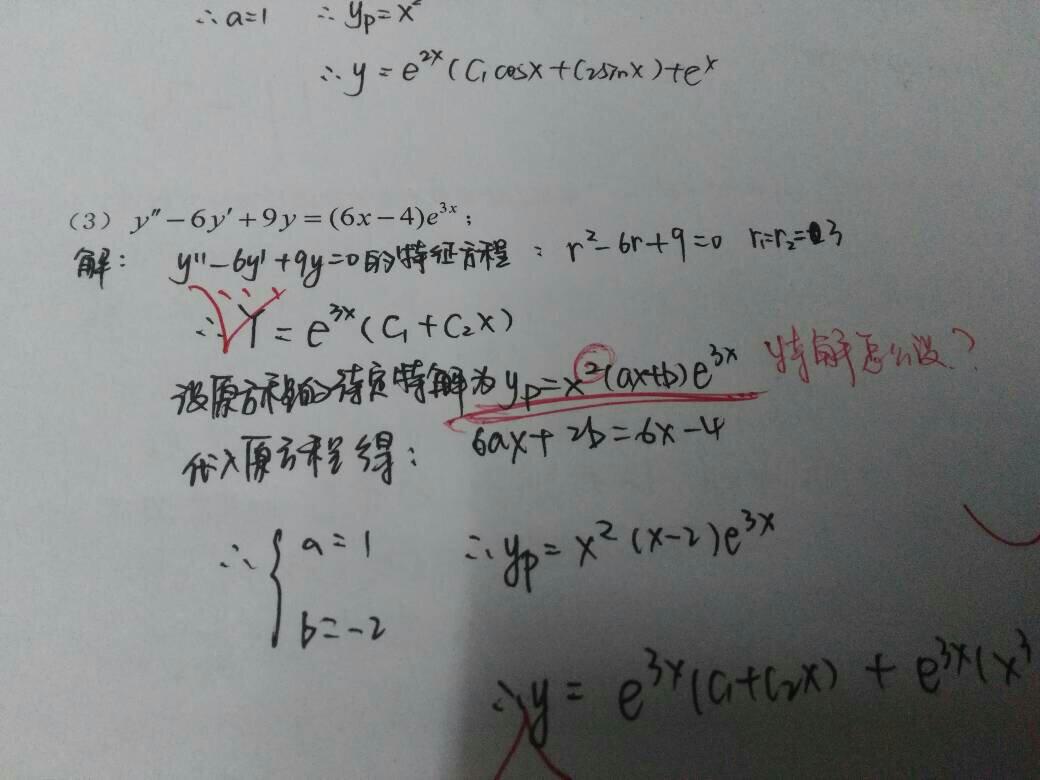 ∴a=1 ∴yₚ=x²
∴y=e²ˣ(C₁cosx+C₂sinx)+eˣ
(3) y″−6y′+9y=(6x−4)e³ˣ;
解: y″−6y′+9y=0的特征方程: r²−6r+9=0 r₁=r₂=3
∴Y=e³ˣ(C₁+C₂x)
设原方程的待定特解为yₚ=x²(ax+b)e³ˣ 特解怎么设?
代入原方程得: 6ax+2b=6x−4
∴{a=1 ∴yₚ=x²(x−2)e³ˣ
b=−2
∴y=e³ˣ(C₁+C₂x)+e³ˣ(x³